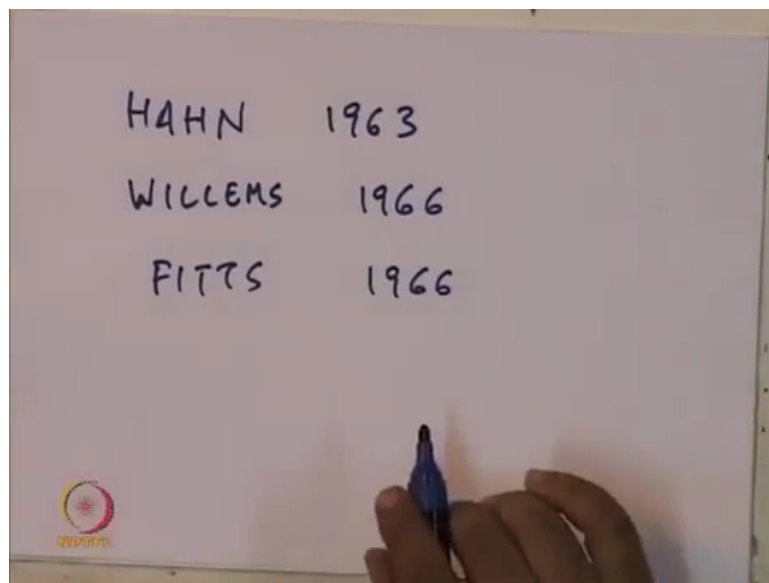 HAHN 1963
WILLEMS 1966
FITTS 1966
NPTEL